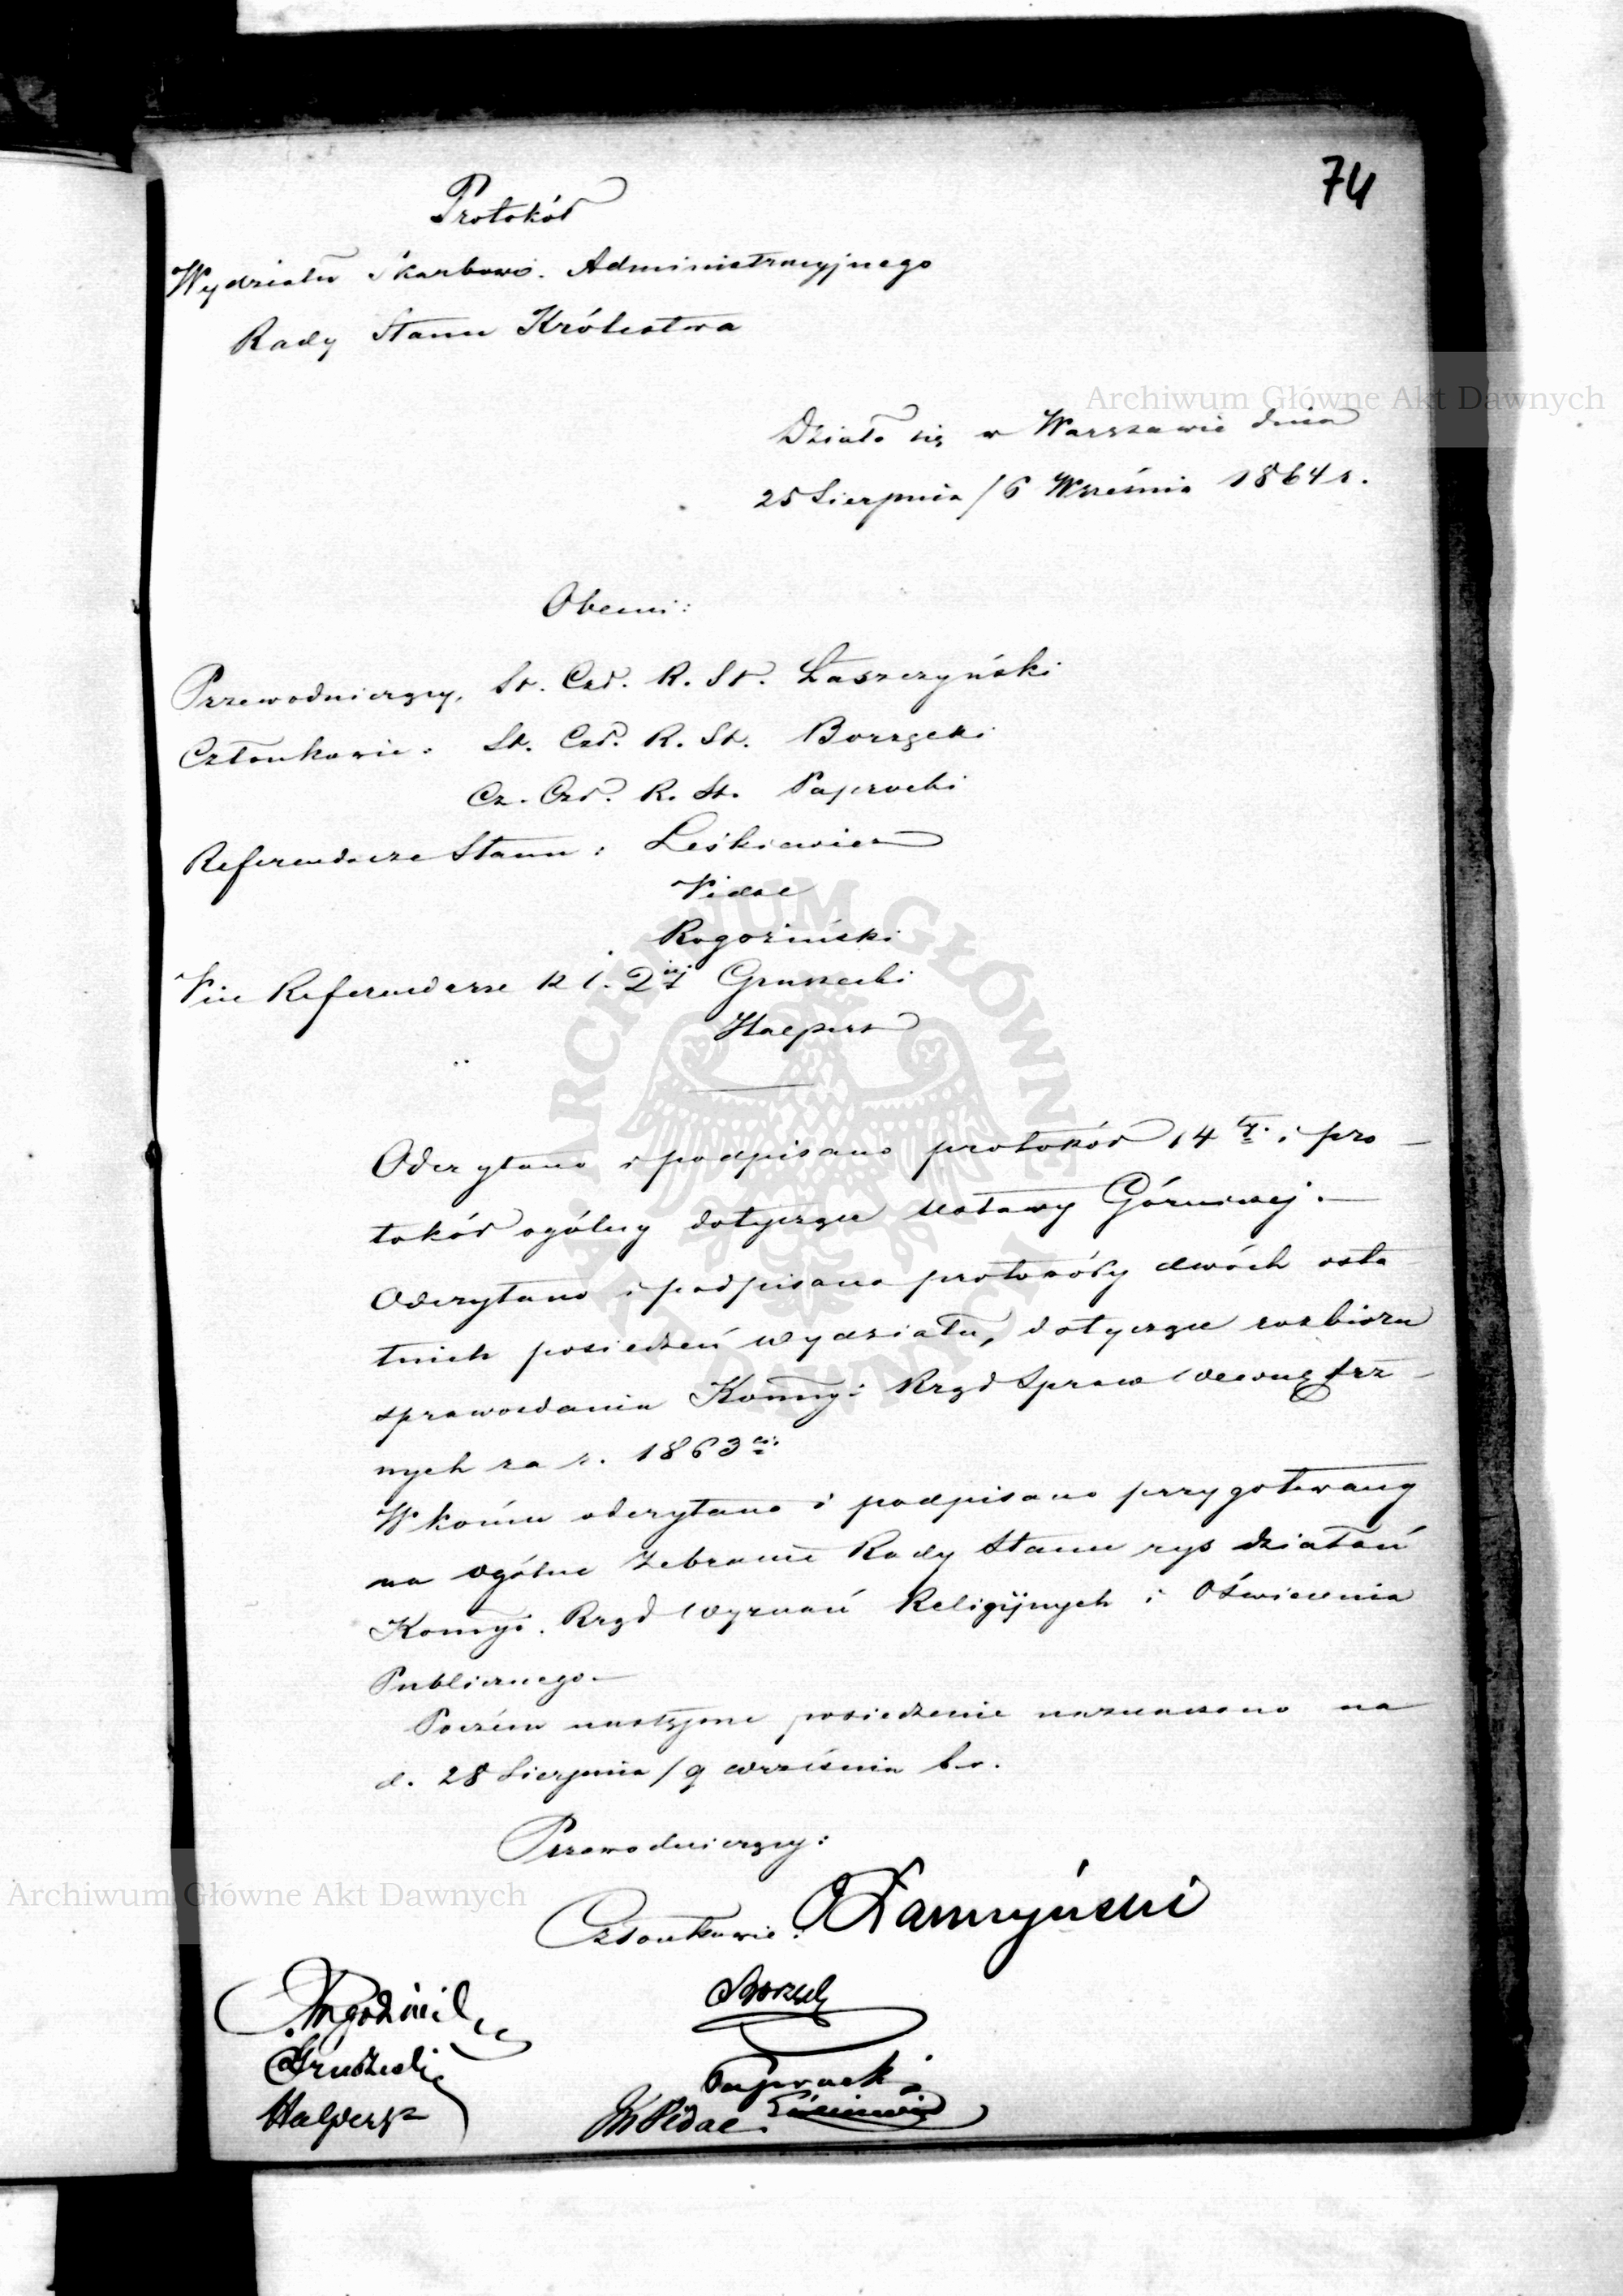 74
Protokół
Wydziału Skarbowo. Administracyjnego
Rady Stanu Królestwa
Archiwum Główne Akt Dawnych
Działo się w Warszawie dnia
25 Sierpnia / 6 Września 1864 r.
Obecni:
Przewodniczący, St. Czł. R. St. Łaszczyński
Członkowie: St. Czł. R. St. Borzęcki
Cz. Czł. R. St. Paprocki
Referendarze Stanu: Leśkiewicz
Vidal
Rogoziński
Vice Referendarze k l. 2iéj Gruszecki
Halpert
ARCHIWUM GŁÓWNE AKT DAWNYCH
Odczytano i podpisano protokół 14ty i pro
tokół ogólny dotyczące ustawy Górniczej. —
Odczytano i podpisano protokóły dwóch osta
tnich posiedzeń wydziału, dotyczące rozbioru
sprawozdania Kommyi Rząd Spraw Wewnętrz –
nych za r. 1863
W końcu odczytano i podpisano przygotowany
na ogólne Zebranie Rady Stanu rys działań
Kommyi. Rząd Wyznań Religijnych i Oświecenia
Publicznego —
Poczém następne posiedzenie naznaczono na
d. 28 Sierpnia / 9 września b.r.
Przewodniczący:
Archiwum Główne Akt Dawnych
Członkowie: Łaszczyński
Rogoziński Borzęcki
Gruszecki Paprocki
Halpert Vidal